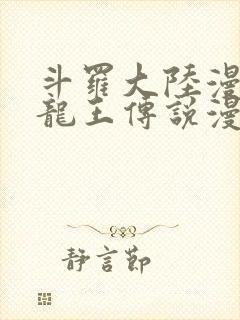 斗羅大陸漫
龍王傳説漫
靜言節